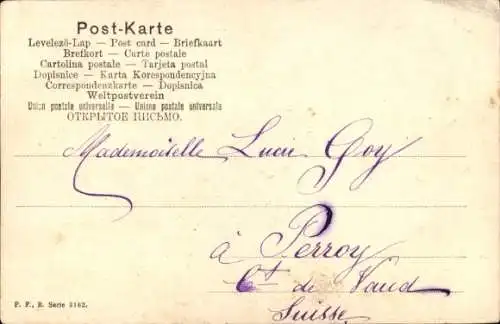 Post-Karte
Levelező-Lap — Post card — Briefkaart
Brefkort — Carte postale
Cartolina postale — Tarjeta postal
Dopisnice — Karta Korespondencyjna
Correspondenzkarte — Dopisnica
Weltpostverein
Union postale universelle — Unione postale universale
ОТКРЫТОЕ ПИСЬМО.
Mademoiselle Lucie Goy
à Perroy
Ct de Vaud
Suisse
P. F., B. Serie 3162.